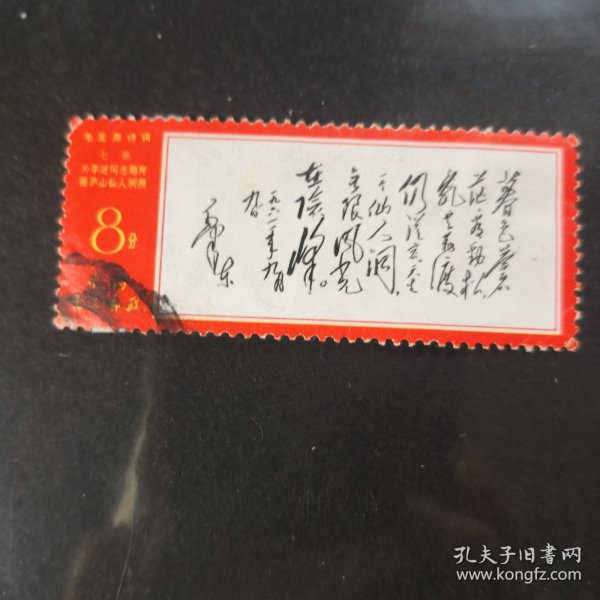 毛主席诗词
七绝
为李进同志题所
摄庐山仙人洞照
8分
暮色蒼
茫看勁松,
亂雲飛渡
仍從容天生
一个仙人洞,
無限風光
在險峰。
一九六一年九月
九日
毛泽东
孔夫子旧书网
www.kongfz.com